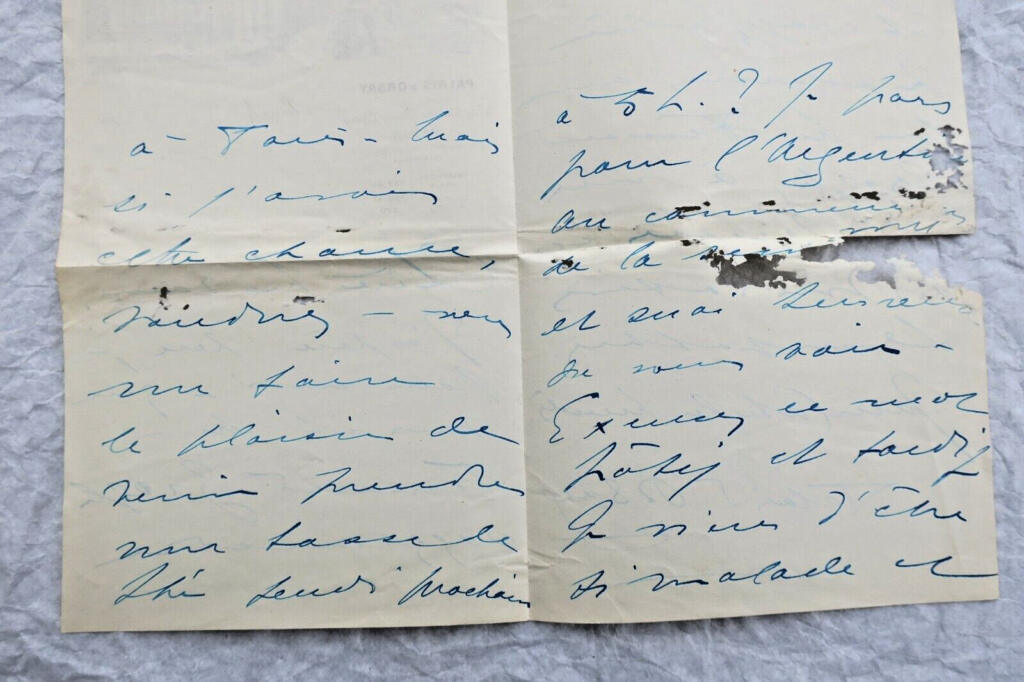 à Paris - Mais
si j'avais
cette chance,
voudriez-vous
me faire
le plaisir de
venir prendre
une tasse de
thé jeudi prochain
à 5 h. ? Je pars
pour l'Argentine
au commence
de la semaine
et serai heureuse
de vous voir -
Excusez ce mot
hâtif et tardif
Je viens d'être
si malade et
PALAIS D'ORSAY